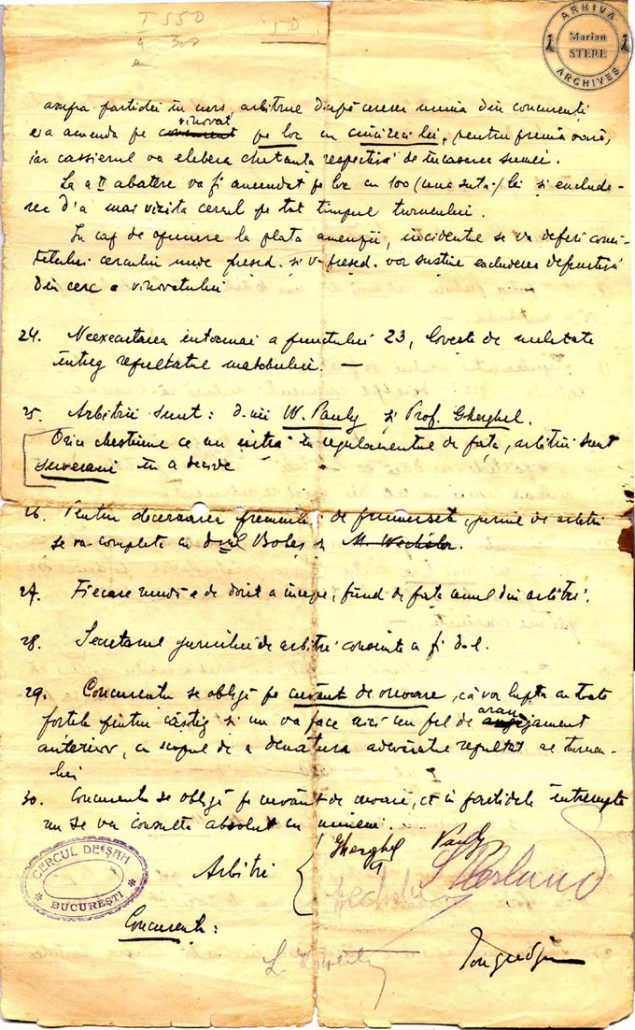 T 550
50
ARHIVA
Marian
STERE
ARCHIVES
asupra partidei în curs, arbitrue după cererea unuia din concurenți
vinovat
va amenda pe pe loc cu cincizeci lei, pentru prima oară,
iar cassierul va elibera chitanța respectivă de încasarea sumei.
La a II abatere va fi amendat pe loc cu 100 (una sută) lei și exclude-
rea d'a mai vizita cercul pe tot timpul turneului.
În caz de opunere la plata amenzii, incidentul se va deferi comi-
tetului cercului unde presed. și v-presed. vor susține excluderea definitivă
din cerc a vinovatului
24. Neexecutarea întocmai a punctului 23, lovește de nulitate
întreg rezultatul matchului. —
25. Arbitrii sunt: d-nii W. Pauly și Prof. Gherghel.
Orice chestiune ce nu intră în regulamentul de față, arbitrii sunt
suverani în a decide
26. Pentru decernarea premiului de frumusețe, juriul de arbitri
se va completa cu d-nul Boleș și M. Wechsler.
27. Fiecare rundă e de dorit a începe, fiind de față unul din arbitri.
28. Secretarul juriului de arbitri consimte a fi d-l.
29. Concurenții se obligă pe cuvânt de onoare, că vor lupta cu toate
forțele pentru câștig și nu va face nici un fel de aranjament
anterior, cu scopul de a denatura adevăratul rezultat al turneu-
lui
30. Concurenții se obligă pe cuvânt de onoare, că în partidele întrerupte
nu se va consulta absolut cu nimeni.
CERCUL DE ȘAH
BUCUREȘTI
Arbitri
Gherghel Pauly
Concurenți: